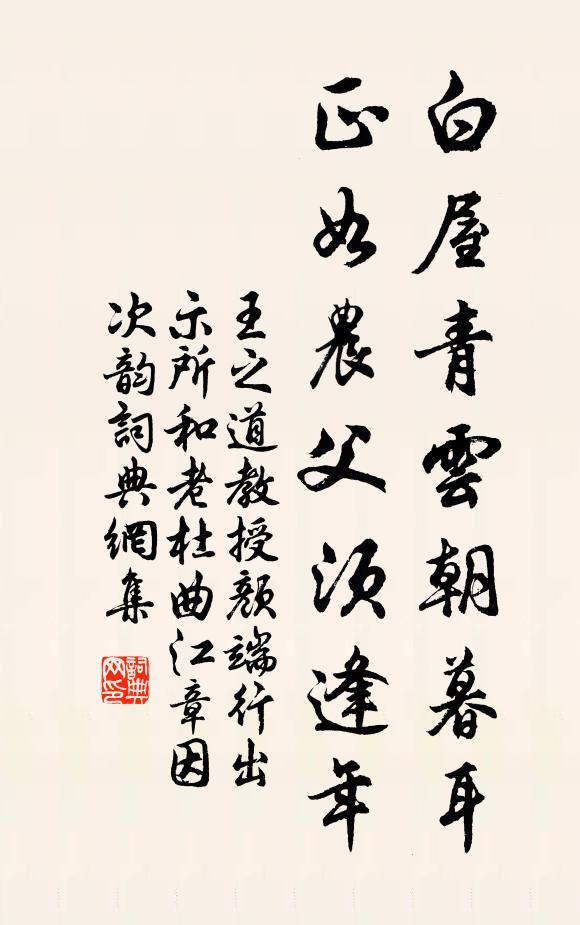 白屋青雲朝暮耳
正如農父須逢年
王之道教授顏端行出
示所和老杜曲江章因
次韵詞典網集
詞典网印